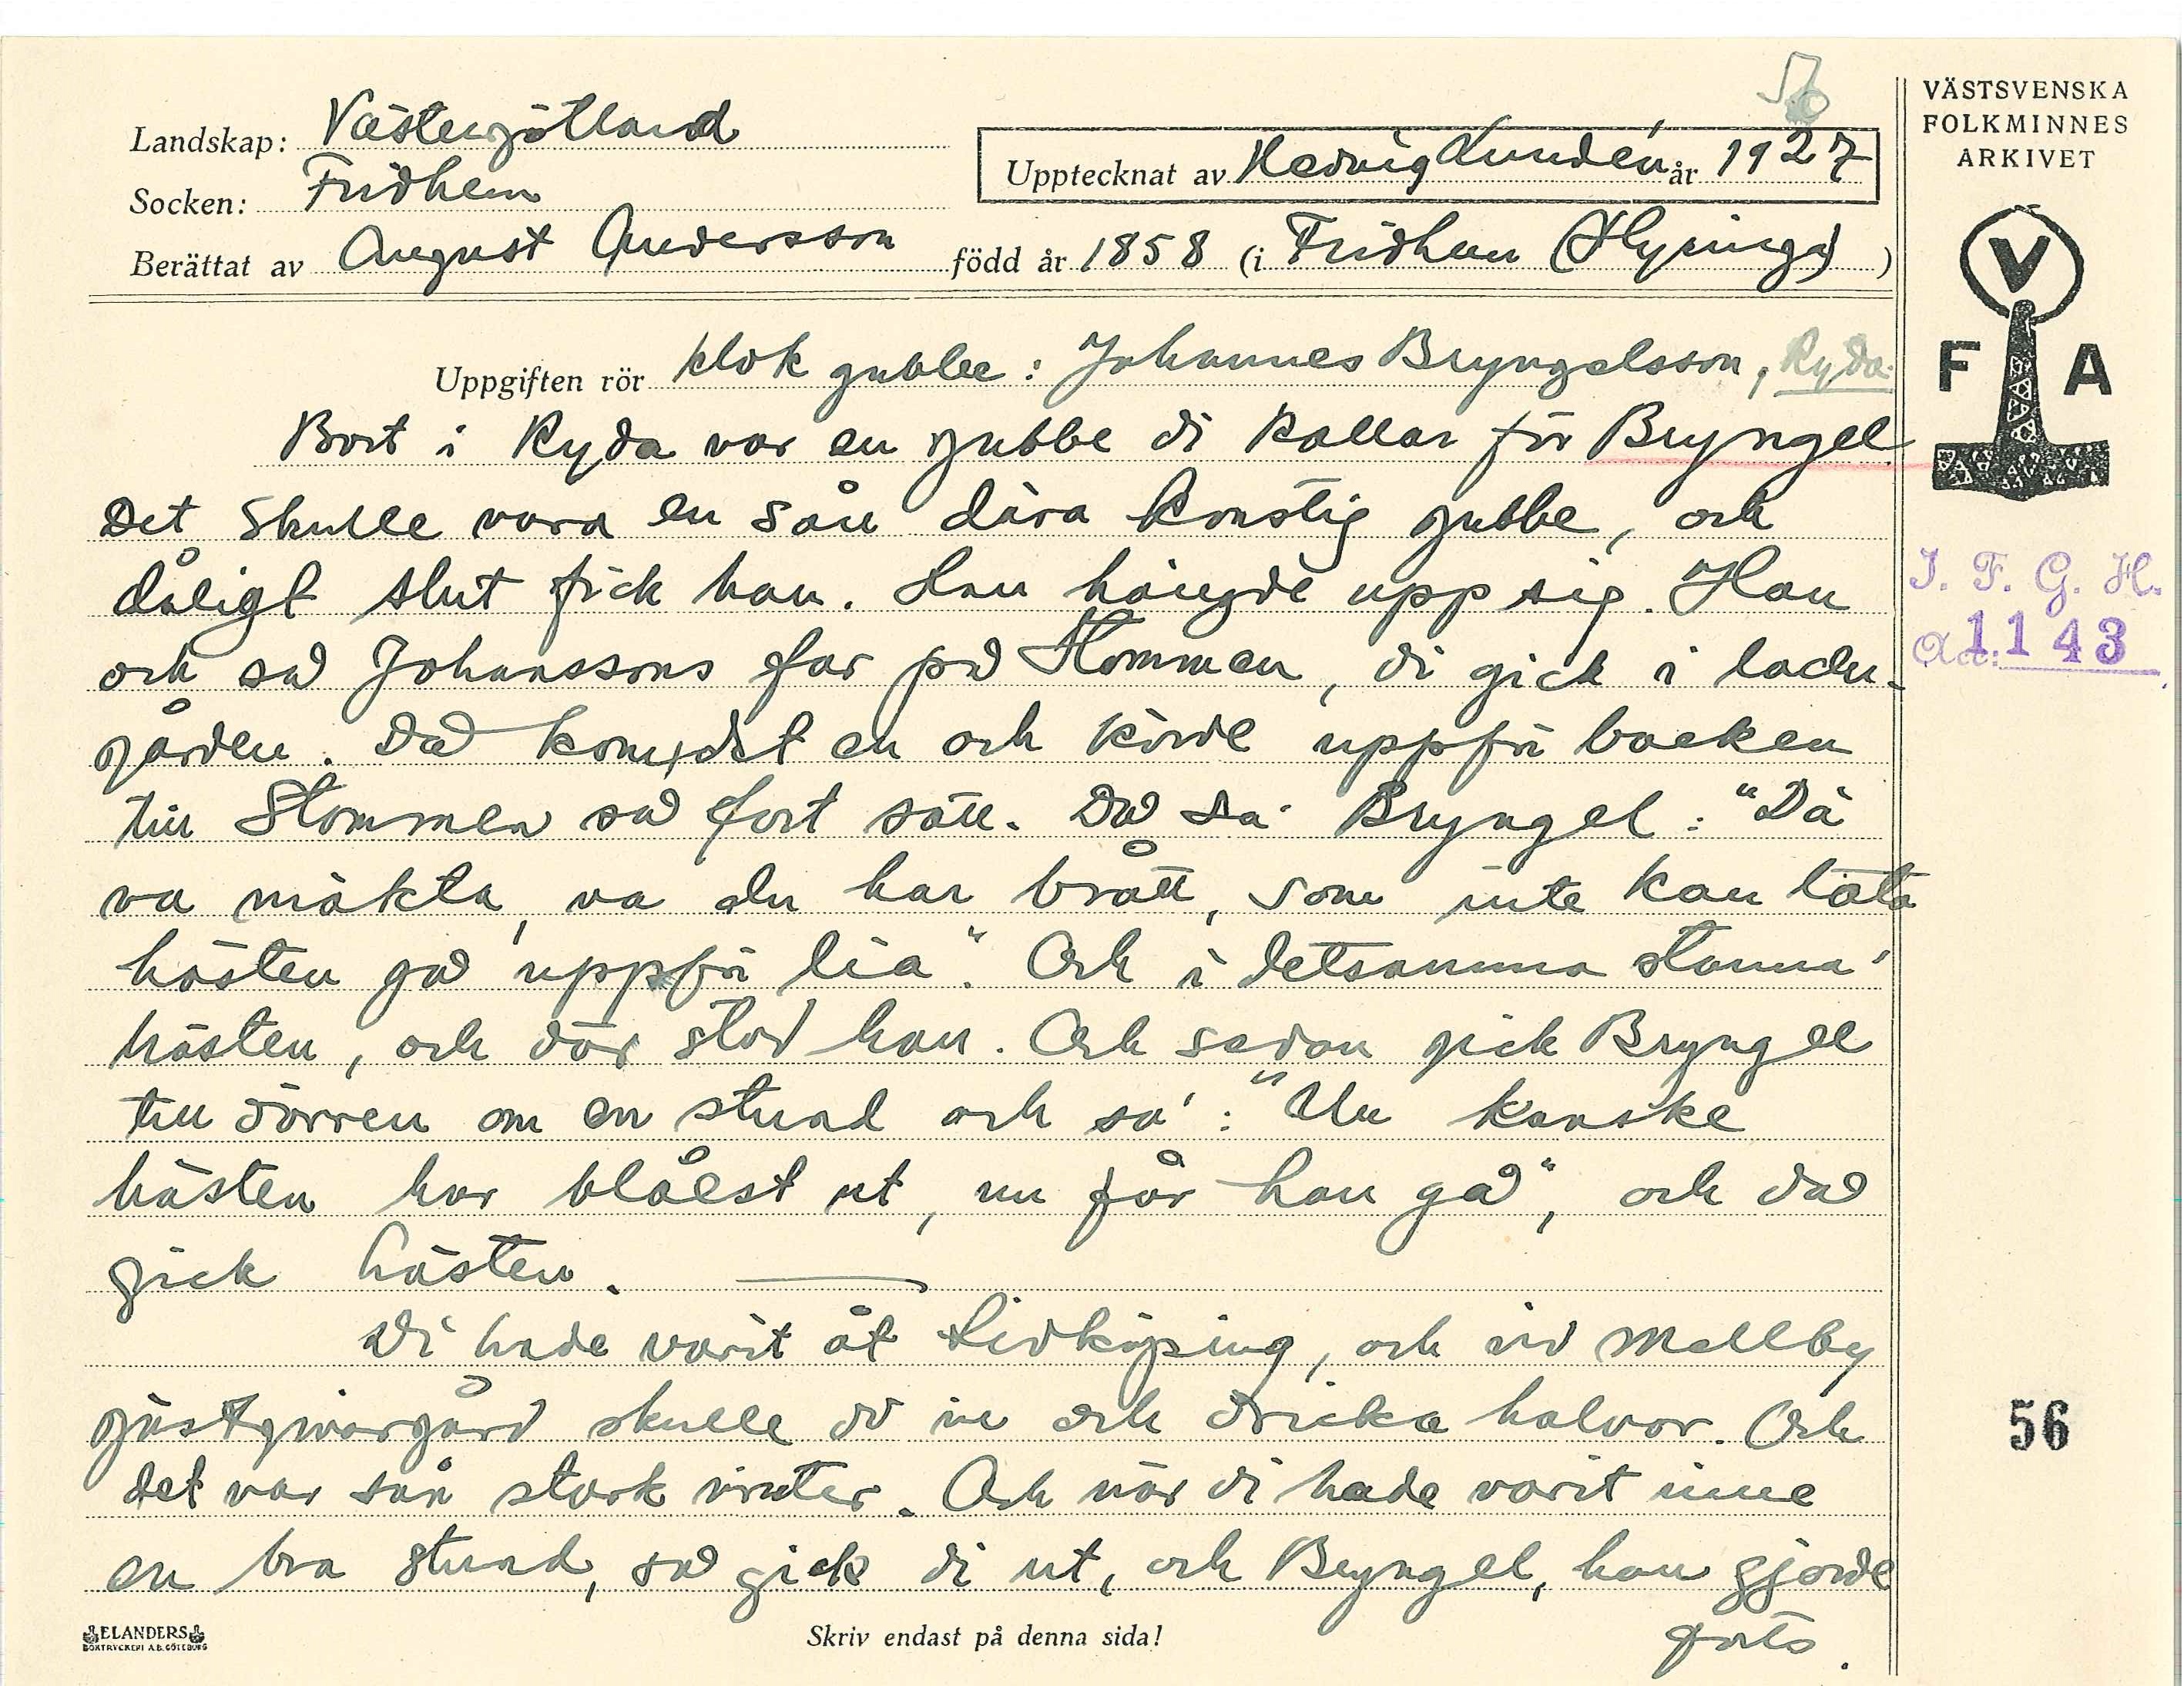 56
Landskap: Västergötland
Socken: Fridhem
Berättat av August Andersson
Upptecknat av Hedvig Lundén år 1927
född år 1858 (i Fridhem (Hyringa) )
VÄSTSVENSKA
FOLKMINNES
ARKIVET
V
F A
Uppgiften rör klok gubbe: Johannes Bryngelsson, Ryda.
Bort i Ryda var en gubbe di kallar för Bryngel.
Det skulle vara en sån dära konstig gubbe, och
dåligt slut fick han. Han hängde upp sig. Han
och så Johanssons far på Stommen, di gick i ladu-
gården. Då kom det en och körde uppför backen
till Stommen så fort sätt. Då sa' Bryngel: "Dä
va mäkta, va du har brått, som inte kan låta
hästen gå uppför lia". Och i detsamma stanna'
hästen, och där stod han. Och sedan gick Bryngel
till dörren om en stund och sa': "Nu kanske
hästen har blåest ut, nu får han gå", och då
gick hästen.
Di hade varit åt Lidköping, och vid Mellby
gästgivargård skulle di in och dricka halvor. Och
det var sån stark vinter. Och när di hade varit inne
en bra stund, så gick di ut, och Bryngel, han gjorde
forts.
I. F. G. H.
acc: 1143
56
ELANDERS
BOKTRYCKERI A.B. GÖTEBORG
Skriv endast på denna sida!